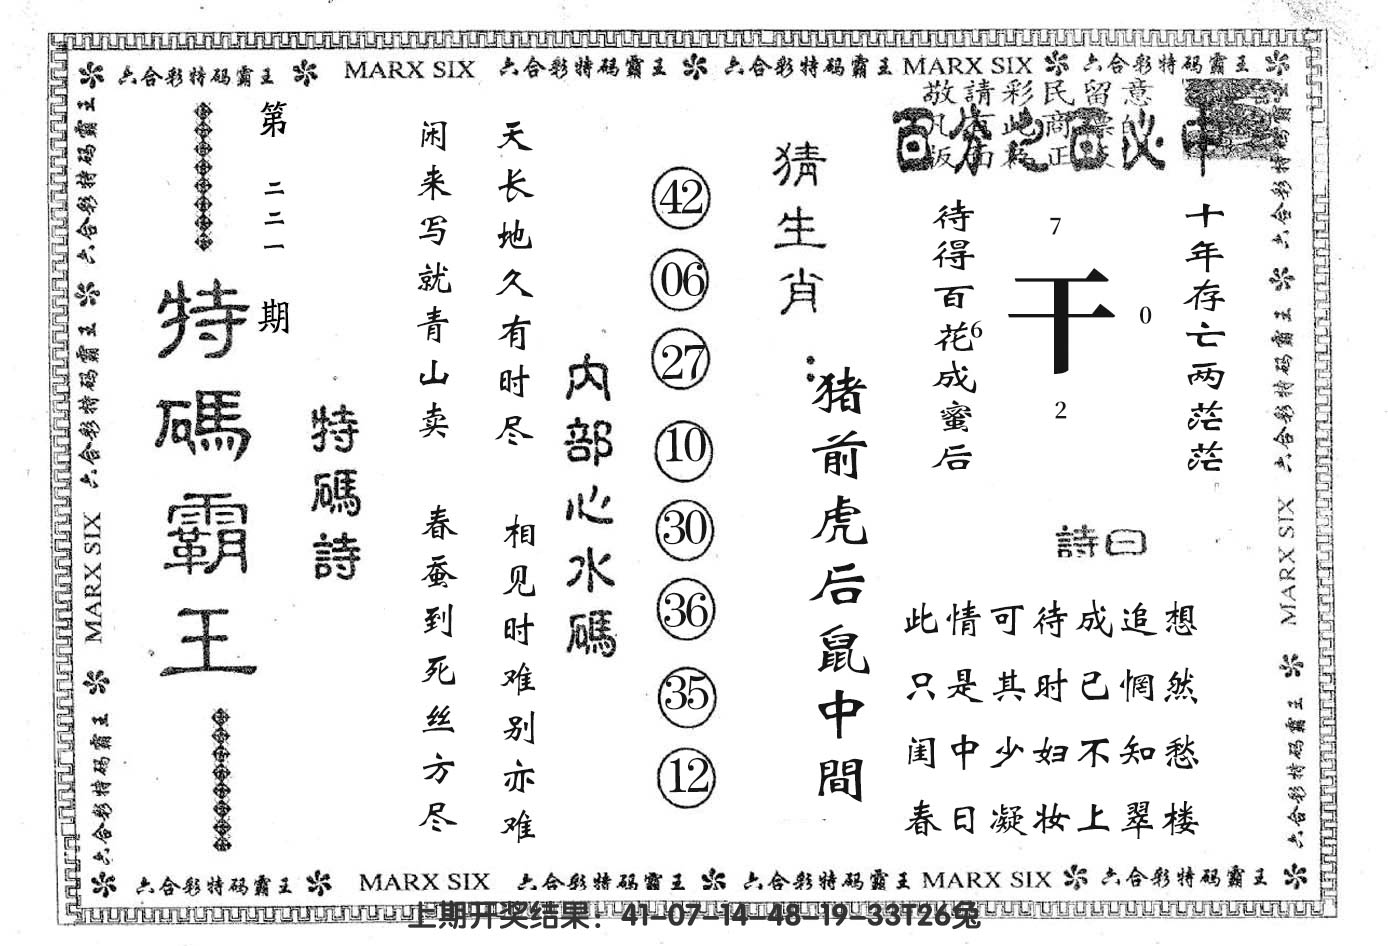 六合彩特码霸王 MARX SIX 六合彩特码霸王 六合彩特码霸王 MARX SIX 六合彩特码霸王
敬請彩民留意
百分之百必中
十年存亡两茫茫
待得百花成蜜后
7
干
0
6
2
詩曰
此情可待成追想
只是其时已惘然
闺中少妇不知愁
春日凝妆上翠楼
猜生肖：
猪前虎后鼠中間
42
06
27
10
30
36
35
12
内部心水碼
天长地久有时尽 相见时难别亦难
闲来写就青山卖 春蚕到死丝方尽
特碼詩
第二二一期
特碼霸王
六合彩特码霸王 六合彩特码霸王 六合彩特码霸王 MARX SIX 六合彩特码霸王
六合彩特码霸王 六合彩特码霸王 MARX SIX 六合彩特码霸王
六合彩特码霸王 MARX SIX 六合彩特码霸王 六合彩特码霸王 MARX SIX 六合彩特码霸王
上期开奖结果：41-07-14-48-19-33T26兔